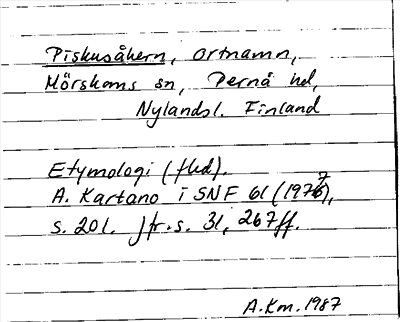 Piskusåkern, ortnamn,
Mörskoms sn, Pernå hd,
Nylandsl. Finland
Etymologi (fled).
A. Kartano i SNF 61 (1977),
s. 201. Jfr. s. 31, 267ff.
A.Km. 1987